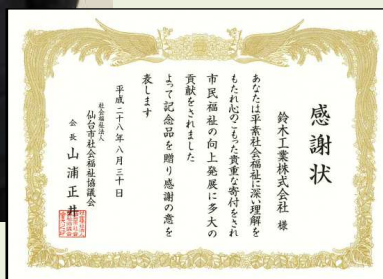 感謝状
鈴木工業株式会社 様
あなたは平素社会福祉に深い理解を
もたれ心のこもった貴重な寄付をされ
市民福祉の向上発展に多大の
貢献をされました
よって記念品を贈り感謝の意を
表します
平成二十八年八月三十日
社会福祉法人
仙台市社会福祉協議会
会長 山浦正井